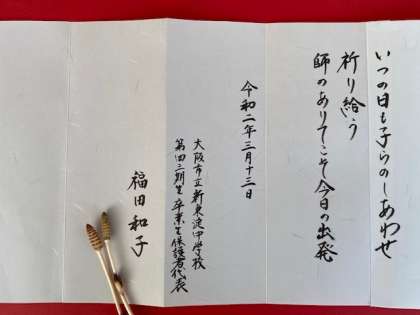 いつの日も子らのしあわせ
祈り給う
師のありてこそ今日の出発
令和二年三月十三日
大阪市立新東淀中学校
第四三期生卒業生保護者代表
福田和子